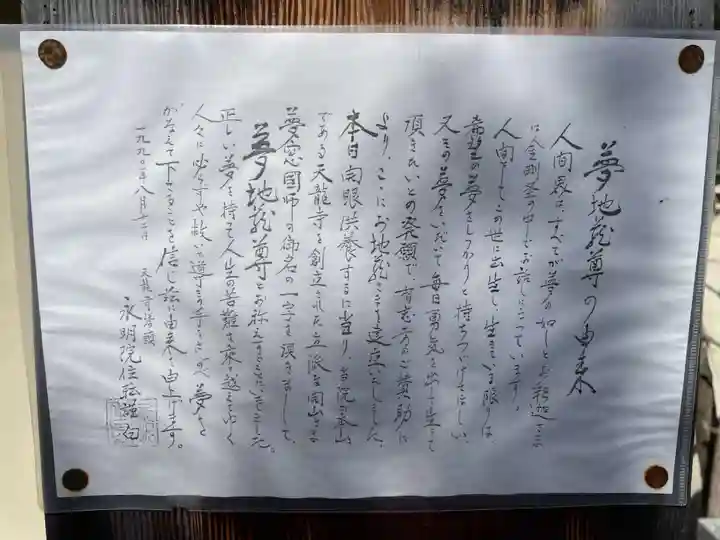 夢地蔵尊の由来
人間界は、すべてが夢の如しとお釈迦さま
は金剛経の中でお話しになっています。
人間としてこの世に出生し、生きている限りは、
希望の夢をしっかりと持ちつづけてほしい、
又その夢をいだいて、毎日勇気を出して生きて
頂きたいとの発願で、有志方のご賛助に
より、ここにお地蔵さまを建立いたしました。
本日開眼供養するに当り、当院の本山
である天龍寺を創立された立派な開山さま
夢窓国師の御名の一字を頂きまして、
夢地蔵尊とお称えすることにいたしました。
正しい夢を持って人生の苦難を乗り越えてゆく
人々に必らずや救いの導きの手をさしのべ夢を
かなえて下さることを信じ茲に由来を申し上げます。
一九九〇年八月十二日 天龍寺塔頭
永明院住職謹白